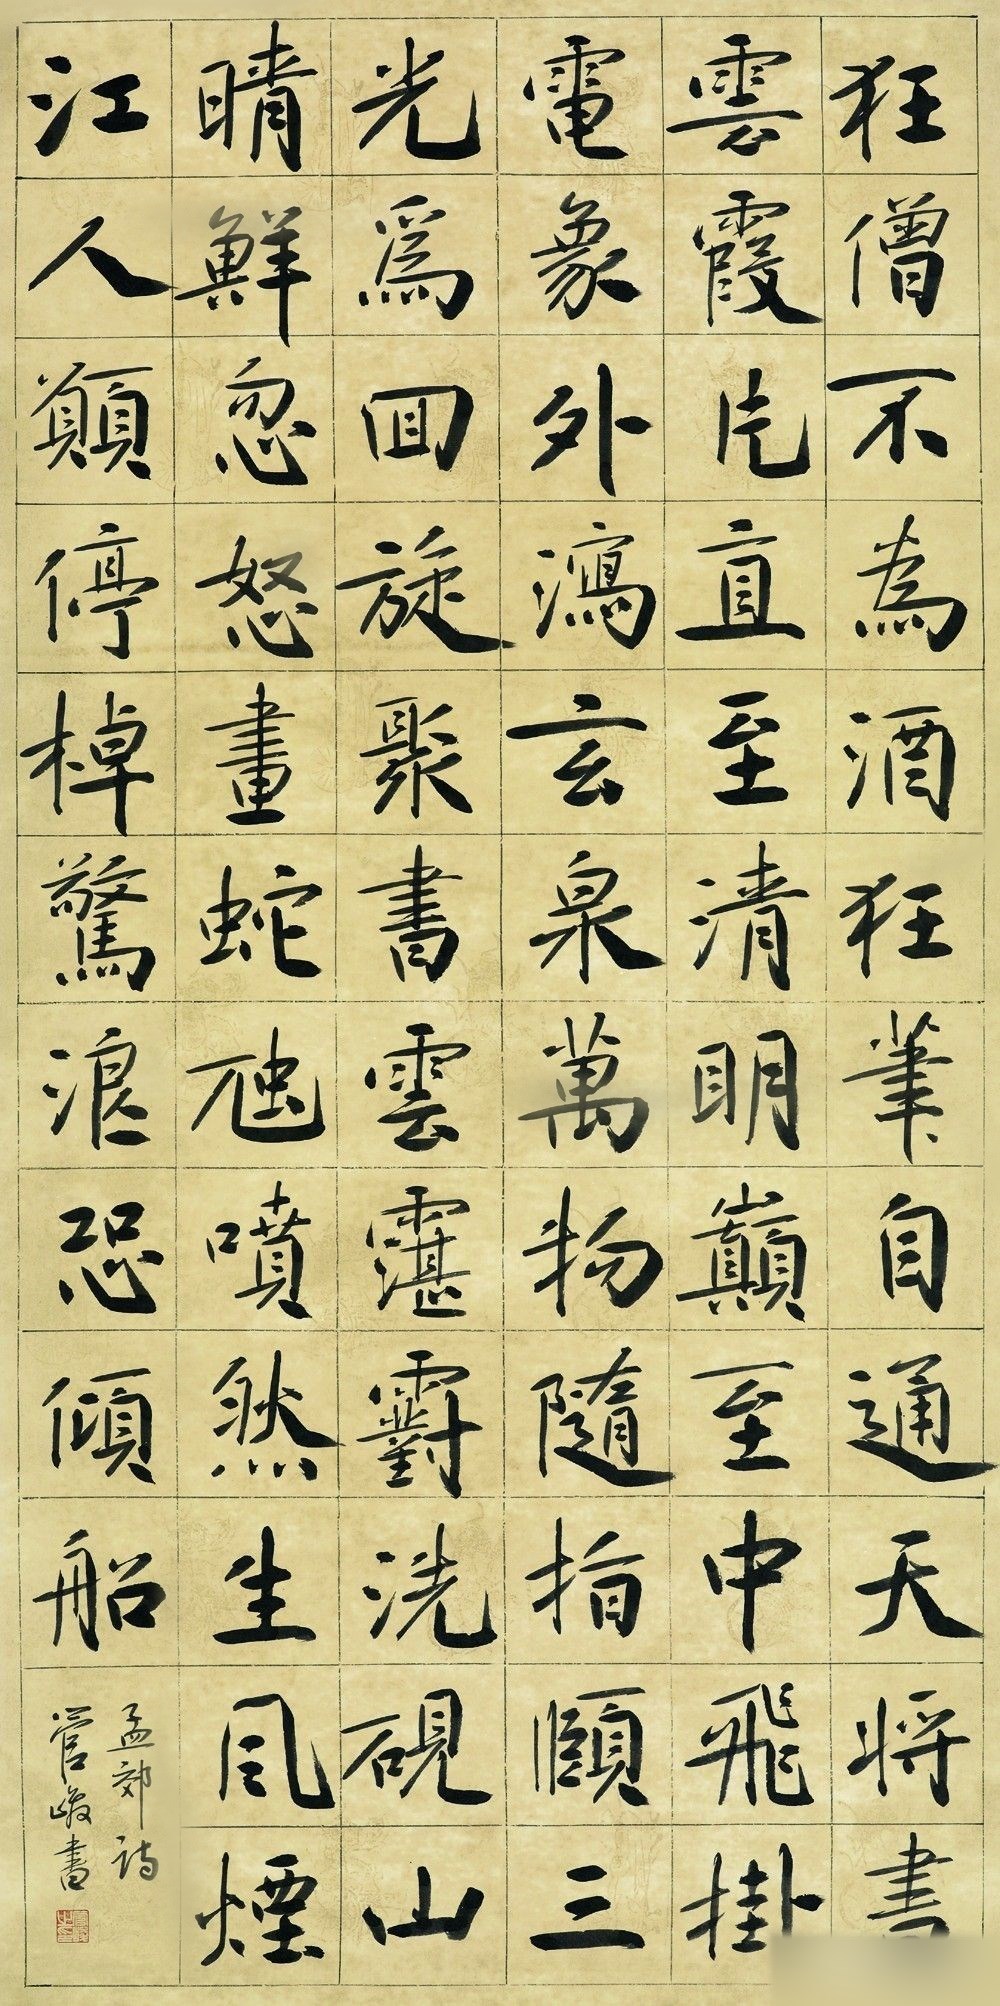 狂僧不為酒狂筆自通天將書
雲霞片直至清明巔至中飛掛
電象外瀉玄泉萬物隨指顧三
光爲回旋聚書雲霮䨴洗硯山
晴鮮忽怒畫蛇虺噴然生風煙
江人願停棹驚浪恐傾船
孟郊詩
管峻書